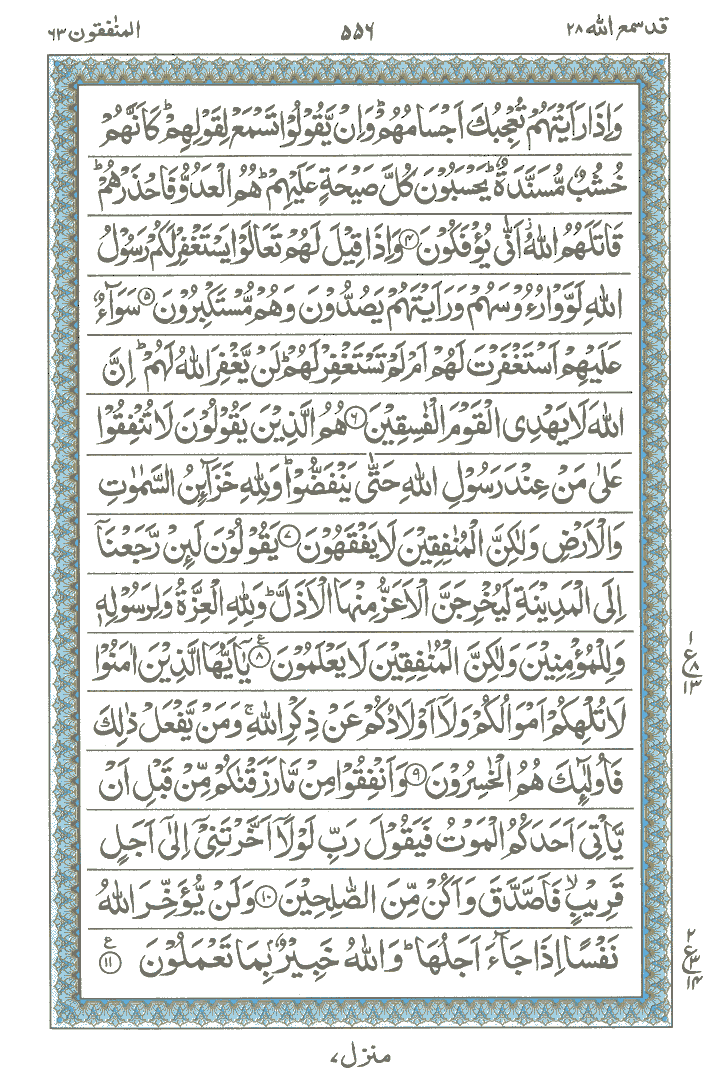 قد سمع الله ۲۸ ۵۵۶ المنٰفقون ۶۳
وَاِذَا رَاَیْتَهُمْ تُعْجِبُكَ اَجْسَامُهُمْ ؕ وَاِنْ یَّقُوْلُوْا تَسْمَعْ لِقَوْلِهِمْ ؕ كَاَنَّهُمْ
خُشُبٌ مُّسَنَّدَةٌ ؕ یَحْسَبُوْنَ كُلَّ صَیْحَةٍ عَلَیْهِمْ ؕ هُمُ الْعَدُوُّ فَاحْذَرْهُمْ ؕ
قَاتَلَهُمُ اللّٰهُ ؗ اَنّٰی یُؤْفَكُوْنَ ۴ وَاِذَا قِیْلَ لَهُمْ تَعَالَوْا یَسْتَغْفِرْ لَكُمْ رَسُوْلُ
اللّٰهِ لَوَّوْا رُءُوْسَهُمْ وَرَاَیْتَهُمْ یَصُدُّوْنَ وَهُمْ مُّسْتَكْبِرُوْنَ ۵ سَوَآءٌ
عَلَیْهِمْ اَسْتَغْفَرْتَ لَهُمْ اَمْ لَمْ تَسْتَغْفِرْ لَهُمْ ؕ لَنْ یَّغْفِرَ اللّٰهُ لَهُمْ ؕ اِنَّ
اللّٰهَ لَا یَهْدِی الْقَوْمَ الْفٰسِقِیْنَ ۶ هُمُ الَّذِیْنَ یَقُوْلُوْنَ لَا تُنْفِقُوْا
عَلٰی مَنْ عِنْدَ رَسُوْلِ اللّٰهِ حَتّٰی یَنْفَضُّوْا ؕ وَلِلّٰهِ خَزَآىِٕنُ السَّمٰوٰتِ
وَالْاَرْضِ وَلٰكِنَّ الْمُنٰفِقِیْنَ لَا یَفْقَهُوْنَ ۷ یَقُوْلُوْنَ لَىِٕنْ رَّجَعْنَاۤ
اِلَی الْمَدِیْنَةِ لَیُخْرِجَنَّ الْاَعَزُّ مِنْهَا الْاَذَلَّ ؕ وَلِلّٰهِ الْعِزَّةُ وَلِرَسُوْلِهٖ
وَلِلْمُؤْمِنِیْنَ وَلٰكِنَّ الْمُنٰفِقِیْنَ لَا یَعْلَمُوْنَ ۸ ع یٰۤاَیُّهَا الَّذِیْنَ اٰمَنُوْا
۱ ع ۸ ۱۳
لَا تُلْهِكُمْ اَمْوَالُكُمْ وَلَاۤ اَوْلَادُكُمْ عَنْ ذِكْرِ اللّٰهِ ۚ وَمَنْ یَّفْعَلْ ذٰلِكَ
فَاُولٰٓىِٕكَ هُمُ الْخٰسِرُوْنَ ۹ وَاَنْفِقُوْا مِنْ مَّا رَزَقْنٰكُمْ مِّنْ قَبْلِ اَنْ
یَّاْتِیَ اَحَدَكُمُ الْمَوْتُ فَیَقُوْلَ رَبِّ لَوْلَاۤ اَخَّرْتَنِیْۤ اِلٰۤی اَجَلٍ
قَرِیْبٍ ۙ فَاَصَّدَّقَ وَاَكُنْ مِّنَ الصّٰلِحِیْنَ ۱۰ وَلَنْ یُّؤَخِّرَ اللّٰهُ
نَفْسًا اِذَا جَآءَ اَجَلُهَا ؕ وَاللّٰهُ خَبِیْرٌۢ بِمَا تَعْمَلُوْنَ ۱۱ ع
۲ ع ۳ ۱۴
منزل ۷